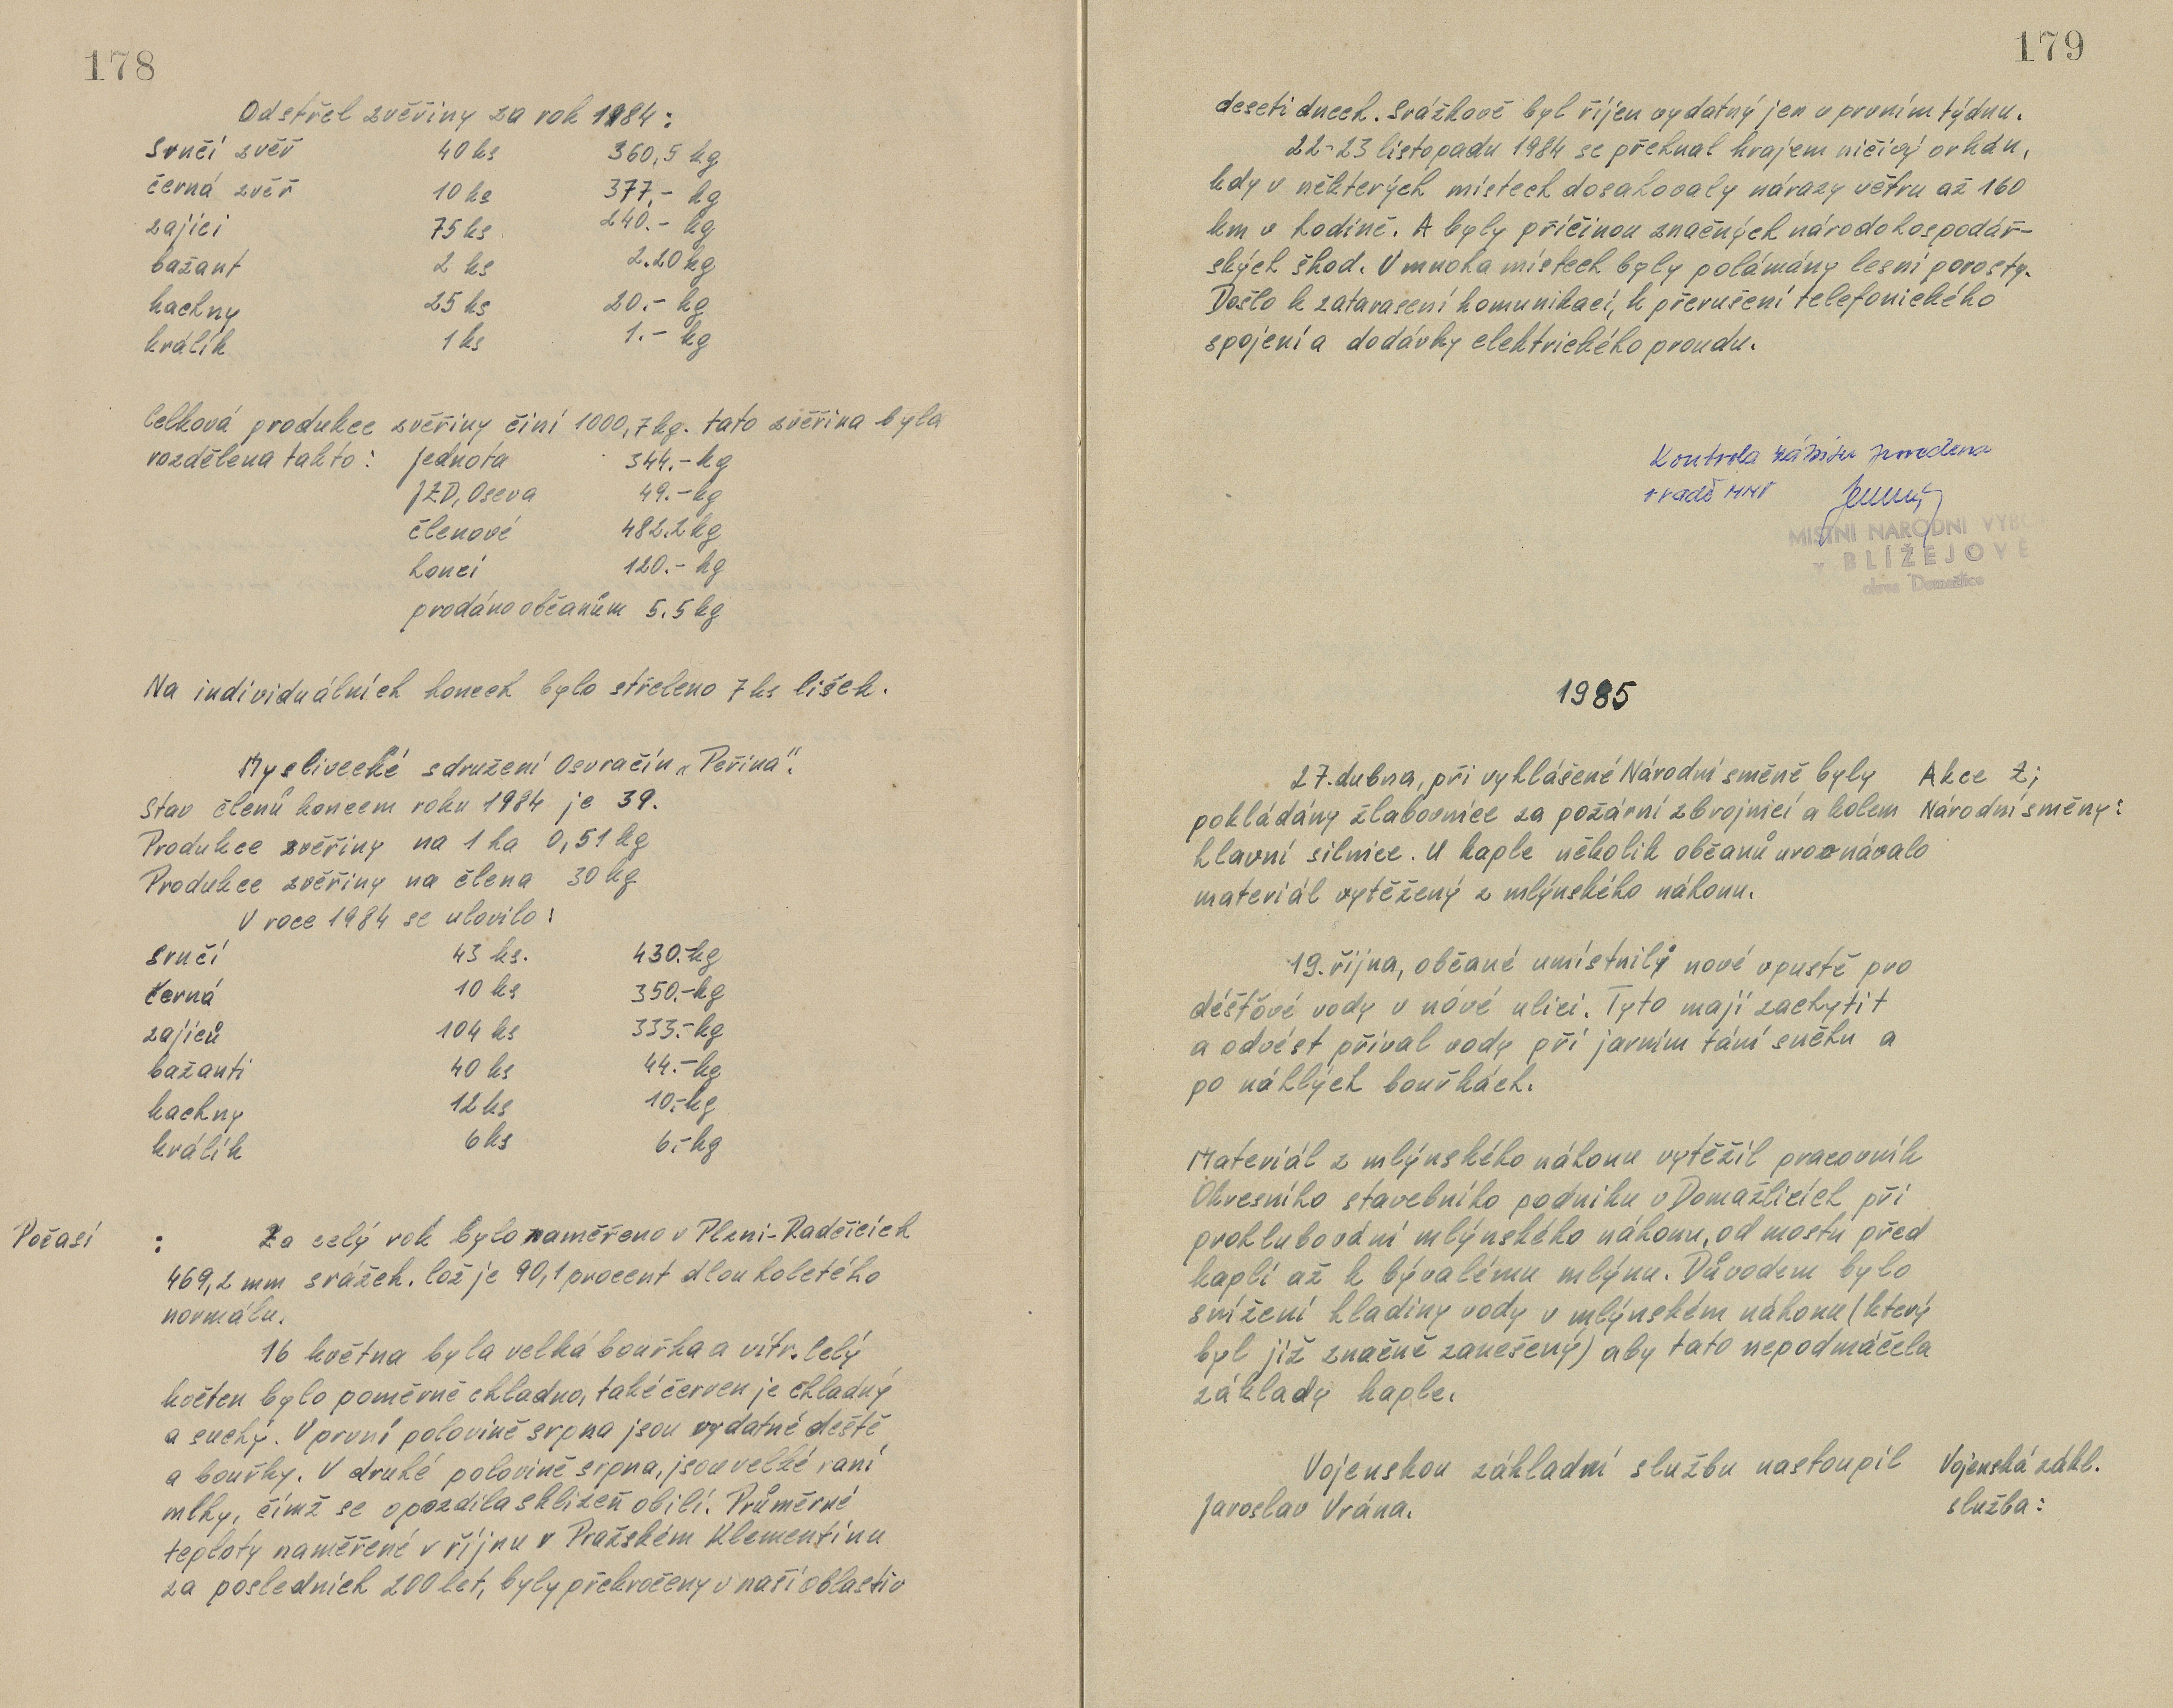 178
Odstřel zvěřiny za rok 1984:
Srnčí zvěř 40 ks 360,5 kg
černá zvěř 10 ks 377,- kg
zajíci 75 ks 240.- kg
bažant 2 ks 2.20 kg
kachny 25 ks 20.- kg
králík 1 ks 1.- kg
Celková produkce zvěřiny činí 1000,7 kg. tato zvěřina byla
rozdělena takto: Jednota 344.- kg
JZD, Oseva 49.- kg
členové 482.2 kg
honci 120.- kg
prodáno občanům 5.5 kg
Na individuálních honech bylo střeleno 7 ks lišek.
Myslivecké sdružení Osvračín „Peřina".
Stav členů koncem roku 1984 je 39.
Produkce zvěřiny na 1 ha 0,51 kg
Produkce zvěřiny na člena 30 kg
V roce 1984 se ulovilo:
Srnčí 43 ks. 430.-kg
černá 10 ks 350.-kg
zajíců 104 ks 333.-kg
bažanti 40 ks 44.-kg
kachny 12 ks 10.-kg
králík 6 ks 6.-kg
Počasí : Za celý rok bylo naměřeno v Plzni-Radčicích
469,2 mm srážek. Což je 90,1 procent dlouholetého
normálu.
16 května byla velká bouřka a vítr. Celý
květen bylo poměrně chladno, také červen je chladný
a suchý. V první polovině srpna jsou vydatné deště
a bouřky. V druhé polovině srpna, jsou velké raní
mlhy, čímž se opozdila sklizeň obilí. Průměrné
teploty naměřené v říjnu v Pražském Klementinu
za posledních 200 let, byly překročeny v naší oblasti v
179
deseti dnech. Srážkově byl říjen vydatný jen v prvním týdnu.
22-23 listopadu 1984 se přehnal krajem ničivý orkán,
kdy v některých místech dosahovaly nárazy větru až 160
km v hodině. A byly příčinou značných národohospodář-
ských škod. V mnoha místech byly polámány lesní porosty.
Došlo k zatarasení komunikací, k přerušení telefonického
spojení a dodávky elektrického proudu.
Kontrola zápisu provedena
v radě MNV
MÍSTNÍ NÁRODNÍ VÝBO
v BLÍŽEJOVĚ
okres Domažlice
1985
27. dubna, při vyhlášené Národní směně byly Akce Z;
pokládány žlabovnice za požární zbrojnicí a kolem Národní směny:
hlavní silnice. U kaple několik občanů urovnávalo
materiál vytěžený z mlýnského náhonu.
19. října, občané umístnily nové vpustě pro
déšťové vody v nóvé ulici. Tyto mají zachytit
a odvést příval vody při jarním tání sněhu a
po náhlých bouřkách.
Materiál z mlýnského náhonu vytěžil pracovník
Okresního stavebního podniku v Domažlicích při
prohlubování mlýnského náhonu, od mostu před
kaplí až k bývalému mlýnu. Důvodem bylo
snížení hladiny vody v mlýnském náhonu (který
byl již značně zanešený) aby tato nepodmáčela
základy kaple.
Vojenskou základní službu nastoupil Vojenská zákl.
Jaroslav Vrána. služba: